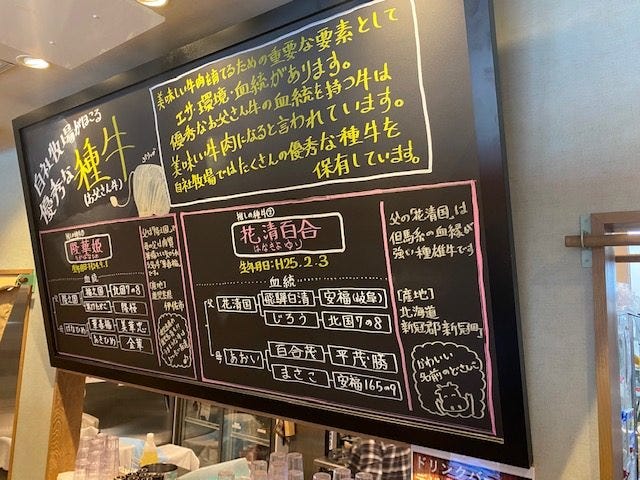 自社牧場がほこる
優秀な種牛
(お父さん牛)
美味しい牛肉を育てるための重要な要素として
エサ・環境・血統があります。
優秀なお父さん牛の血統を持つ牛は
美味しい牛肉になると言われています。
自社牧場ではたくさんの優秀な種牛を
保有しています。
血統
北国7の8
[産地]
推しの種牛②
花清百合
はなきよゆり
生年月日:H25.2.3
血統
父 花清国
飛騨白清 安福(岐阜)
じろう 北国7の8
母 あおい
百合茂 平茂勝
まさこ 安福165の9
父の「花清国」は
但馬系の血縁が
強い種雄牛です
[産地]
北海道
新冠郡新冠町
かわいい
名前のとさんこ
ドリンクバー